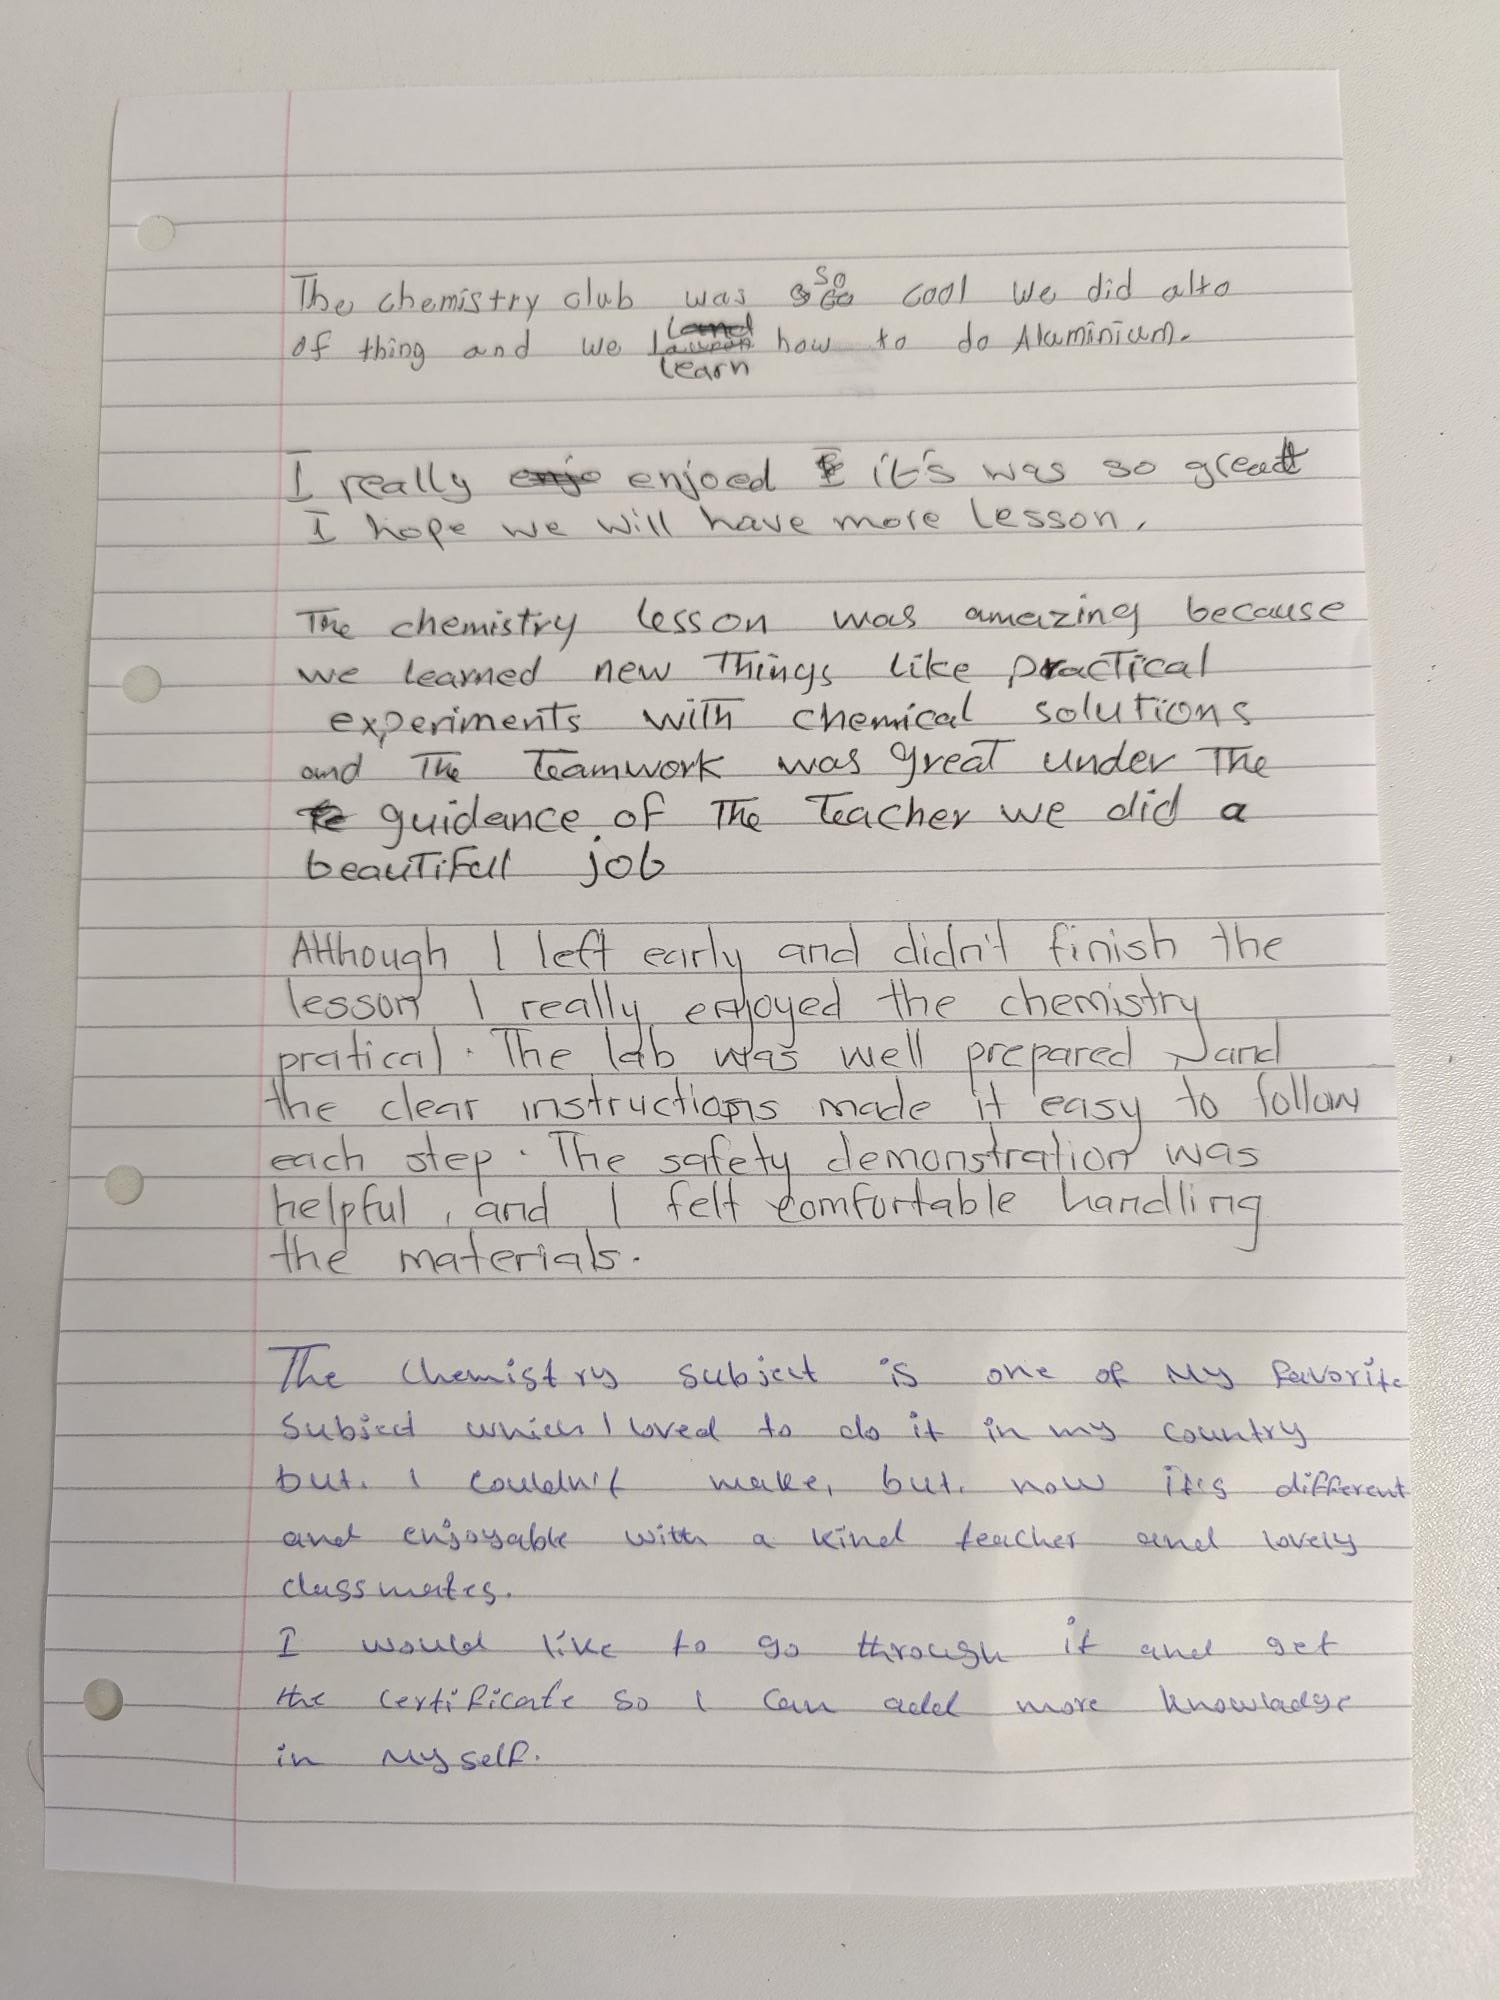 The chemistry club was so cool we did alto
of thing and we learn how to do Aluminium.
I really enjoed it's was so great
I hope we will have more lesson.
The chemistry lesson was amazing because
we learned new Things like practical
experiments with chemical solutions
and The Teamwork was great under The
guidance of The Teacher we did a
beautifull job
Although I left early and didn't finish the
lesson I really enjoyed the chemistry
pratical. The lab was well prepared and
the clear instructions made it easy to follow
each step. The safety demonstration was
helpful, and I felt comfortable handling
the materials.
The Chemistry subject is one of My favorite
Subject which I loved to do it in my country
but. I couldn't make, but. now it's different
and enjoyable with a kind teacher and lovely
classmates.
I would like to go through it and get
the certificate so I can add more knowladge
in My self.